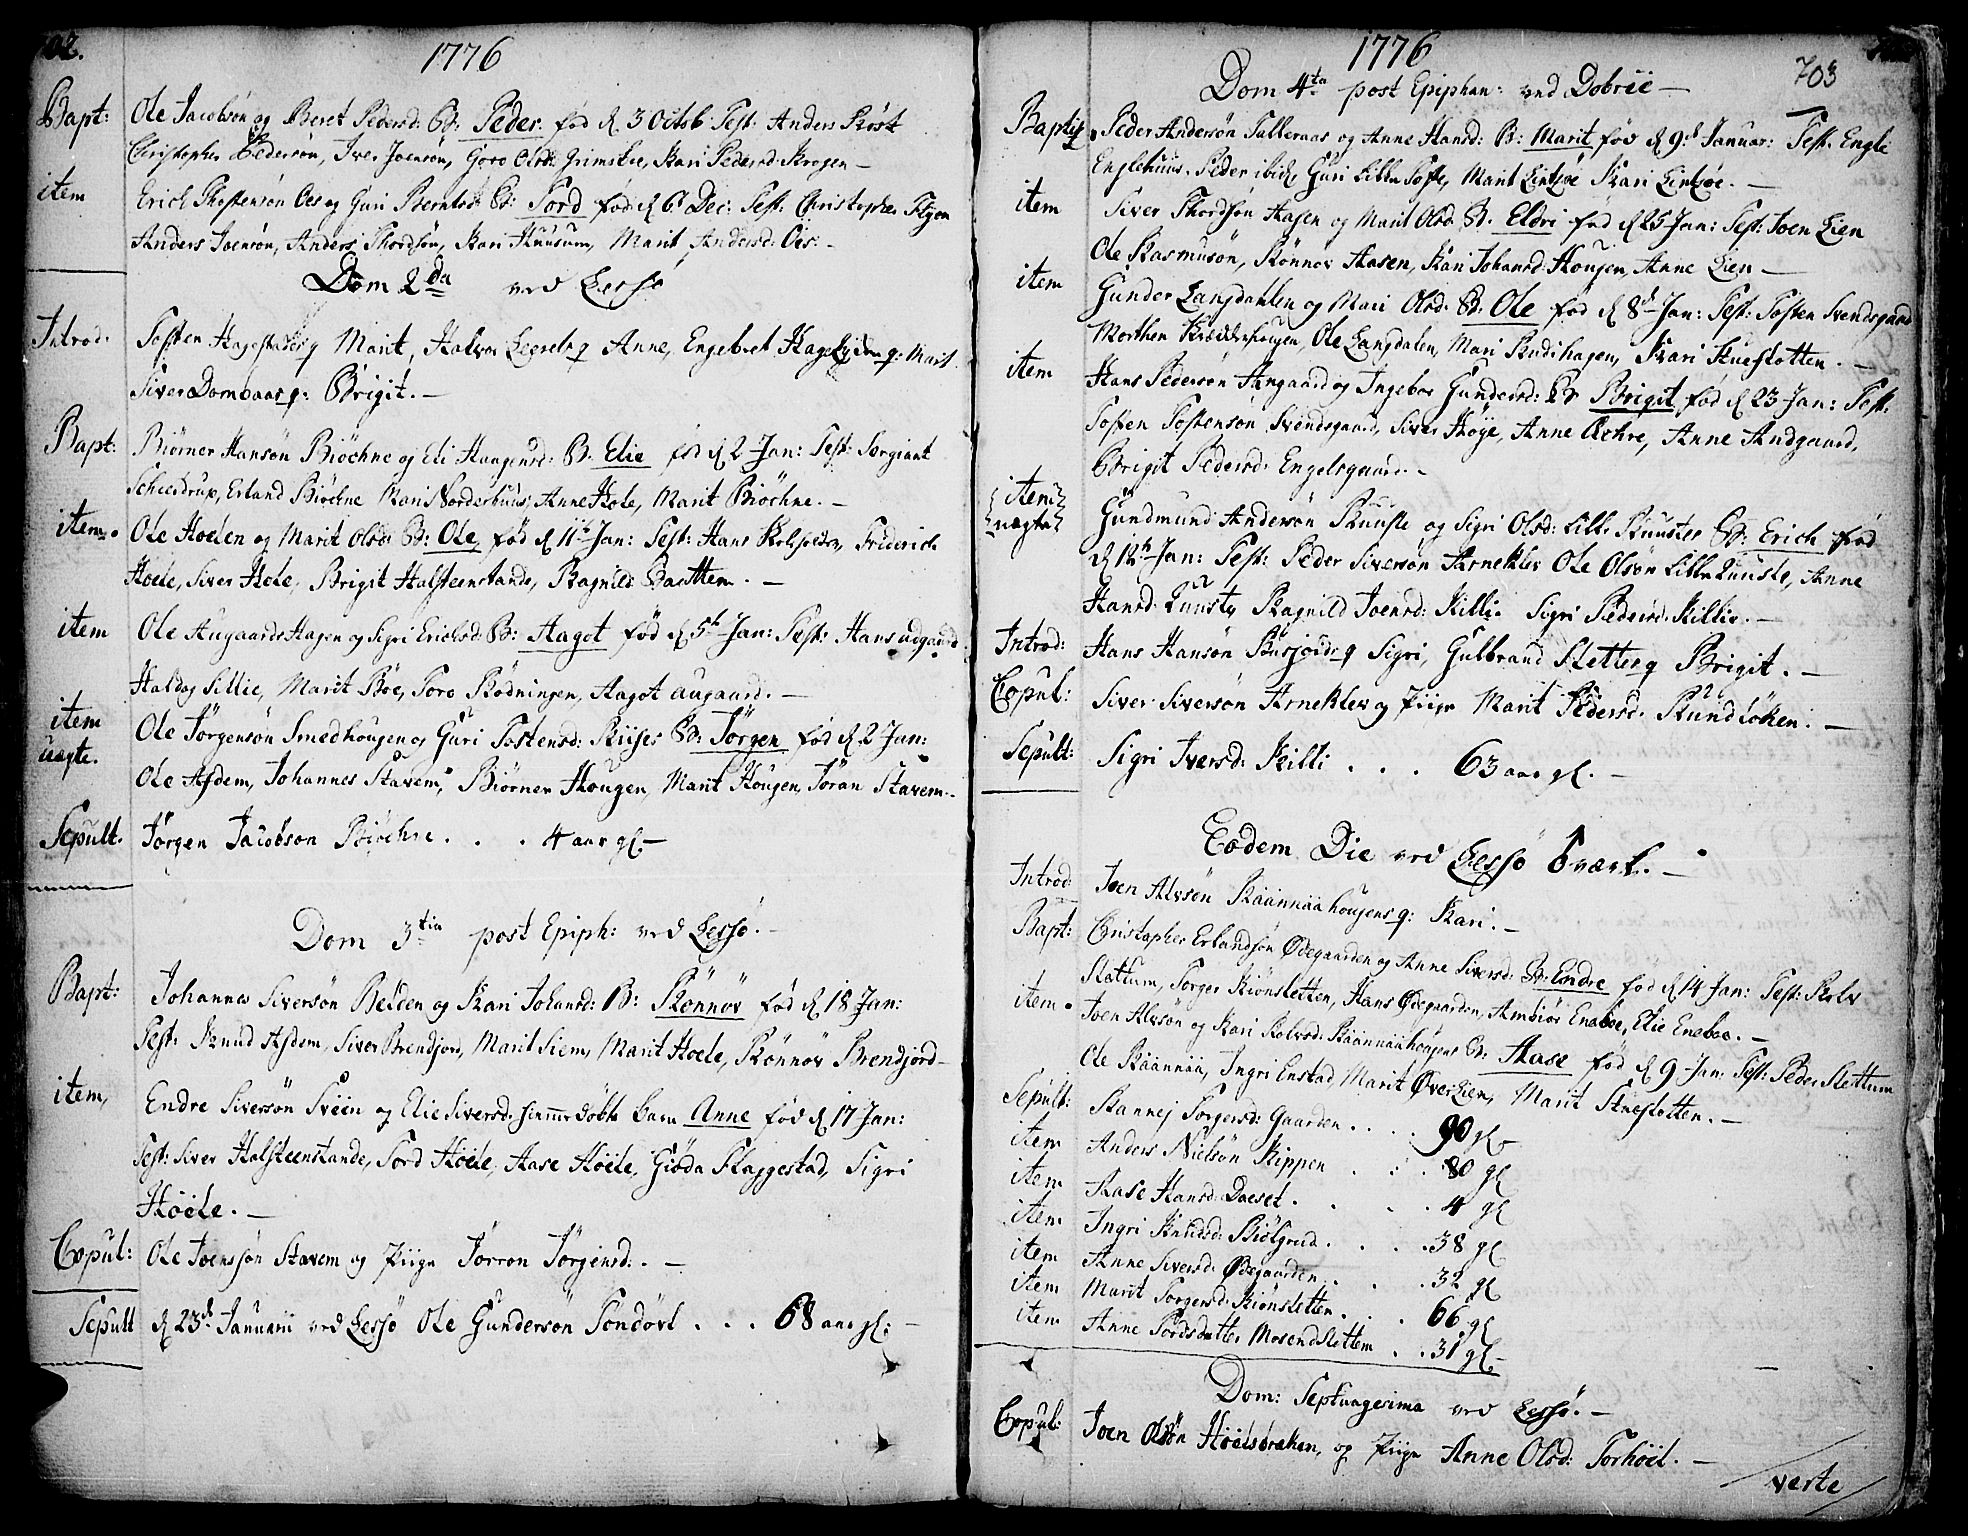 702.
1776
Bapt: Ole Jacobsøn og Beret Pedersd: B: Peder. fød d. 3 Octob: Test: Anders
Christopher Pedersøn, Iver Joensøn, Goro Olsd: Grimskee, Kari Pedersd: Krogen –
item Erich Thostensøn Oes og Guri Berntsd: B: Tord fød d. 6 Dec: Test: Christopher
Anders Joensøn, Anders Thordsøn, Kari Huusum, Marit Andersd: Oes: –
Dom 2da ved Lessø
Introd: Tosten Hagestad q Marit, Halvor q Anne, Engebret q: Marit
Siver Dombaas q: Brigit. –
Bapt: Biørner Hansøn Biøchne og Eli Haagensd: B. Elie fød d 2 Jan: Test: Sergiant
Scheldrup, Erland Biøchne Mari Norderhuus, Anne Hole, Marit Biøchne. –
item. Ole Hoelen og Marit Olsd: B: Ole, fød d 11t Jan: Test: Hans Friderich
Hoele, Siver Hole, Brigit Halsteenstande, Ragnild Bottem. –
item Ole Augaards Hagen og Sigri Erichsd: B: Aagot fød d 5t Jan: Test: Hans udgaard
Haldog Lillie, Marit Bøe, Toro Rødningen, Aagot Augaard. –
item uægte. Ole Jørgensøn Smedhougen og Guri Tostensd: Riise B: Jørgen fød d. 2 Jan:
Ole Asdem, Johannes Stavem, Biørner Hougen, Marit Hougen, Jøran Stavem. –
Sepult. Jørgen Jacobson Biøchne . . . 4 aar gl. –
Dom 3tia post Epiph: ved Lessø. –
Bapt: Johannes Siversøn Bellden og Kari Johansd: B: Rønnøv fød d 18 Jan:
Test: Knud Asdem, Siver Brendjord, Marit Siem, Marit Hoele, Rønnøv Brendjord –
item, Endre Siversøn Sveen og Elie Siversd: hiemme døbte barn Anne fød d 17 Jan:
Test: Siver Halsteenstande, Tord Høele, Aase Høele, Giøda Flaggestad, Sigri
Høele. –
Copul: Ole Joensøn Stavem og Piige Jørron Jørgensd: . –
Sepult d 23de Januarii ved Lessø Ole Gundersøn Tondøvl . . . 68 aar gl: –
1776
703
Dom 4ta post Epiphan: ved Dobrie –
Baptiz. Peder Andersøn Talleraas og Anne Hansd: B: Marit fød d 9de Januar: Test. Engle
Englehuus. Peder ibid, Guri Lille Tofte, Marit Lintsøe Kari Lintsøe. –
item Siver Thordsøn Aasen og Marit Olsd B: Eldri fød d 25 Jan: Test: Joen Lien
Ole Rasmusøn, Rønnov Aasen, Kari Johansd: Hougen, Anne Lien –
item Gunder Langdahlen og Mari Olsd. B: Ole fød d 8de Jan: Test: Tosten Svendsgaard
Morthen Ole Langdalen, Mari Rudihagen, Kari Stuestotten. –
item Hans Pedersøn Angaard og Ingebor Gundersd: B. Brigit fød d 23 Jan: Test:
Tosten Tostensøn Svendsgaard, Siver Høye, Anne Achre, Anne Andgaard,
Brigit Pedersd: Engelsgaard. –
item uægte Gundmund Andersøn Kuuste og Sigri Olsd: Lille Kuuster B: Erich fød
d 12te Jan: Test: Peder Siversøn Arneklev Ole Olsøn Lille Kuuste, Anne
Hansd: Kuuste, Ragnild Joensd: Killi. Sigri Pedersd: Killie. –
Introd: Hans Hansøn q Sigri, Gulbrand Sletten q Brigit. –
Copul: Siver Siversøn Arneklev og Piige Marit Pedersd: Rundløken: –
Sepult: Sigri Iversd: Killi . . . 63 aar gl. –
Eodem Die ved Lessø Tværl. –
Introd Joen Alvsøn Raannaahougens q: Kari. –
Bapt: Christopher Erlandsøn Ødegaarden og Anne Siversd: B: Endre fød d 14 Jan: Test: Rolv
Slettum, Torger Kiønsletten, Hans Ødegaarden, Ambiør Eneboe, Elie Eneboe. –
item. Joen Alvsøn og Kari Rolvsd: Raannaahougens B: Aase fød d 9 Jan: Test: Peder Slettum
Ole Raannaa, Ingri Enstad Marit ØverLien, Marit Stuestotten. –
Sepult: Rannej Torgersd: Gaarden . . . . 90 gl
item Anders Nielsøn Kippen . . . 80 gl
item Aase Hansd: Daeset . . . . 4 gl
item Ingri Knudsd: Kiølgrud . . . . 38 gl
item Anne Siversd: Ødegaarden . . . 32 gl
item Marit Torgersd: Kiønsletten . . . 66 gl
item Anne Tordsdatter Mosend Slettem . . 31 gl. –
Dom: Septuagesima ved Lessø. –
Copul: Joen Olsøn Hoelsbrekken, og Piige Anne Olsd: Torhøel. –
verte